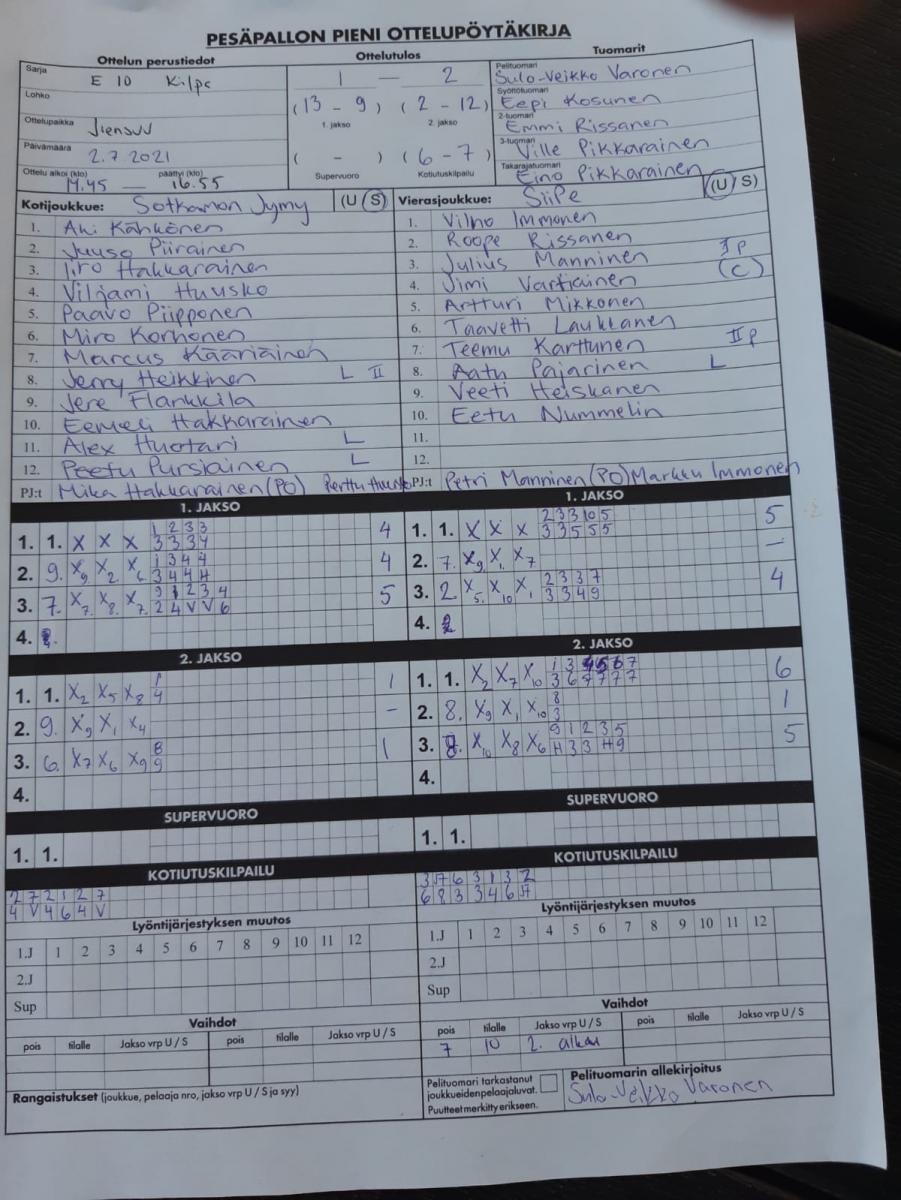 PESÄPALLON PIENI OTTELUPÖYTÄKIRJA
Ottelun perustiedot
Sarja E 10 Kilpa
Lohko
Ottelupaikka Jiensuu
Päivämäärä 2.7 2021
Ottelu alkoi (klo) 14.45 — päättyi (klo) 16.55
Ottelutulos
1 — 2
(13 - 9) (2 - 12)
1. jakso 2. jakso
( - ) (6 - 7)
Supervuoro Kotiutuskilpailu
Tuomarit
Pelituomari Sulo-Veikko Varonen
Syöttötuomari Eepi Kosunen
2-tuomari Emmi Rissanen
3-tuomari Ville Pikkarainen
Takarajatuomari Eino Pikkarainen
Kotijoukkue: Sotkamon Jymy (U S)
1. Aki Kähkönen
2. Juuso Piirainen
3. Iiro Hakkarainen
4. Viljami Huusko
5. Paavo Piipponen
6. Miro Korhonen
7. Marcus Kääriäinen
8. Jerry Heikkinen L II
9. Jere Flankkila
10. Eemeli Hakkarainen
11. Alex Huotari L
12. Peetu Pursiainen L
PJ:t Mika Hakkarainen (PO) Perttu Huusko
Vierasjoukkue: SiiPe (U S)
1. Vilho Immonen
2. Roope Rissanen
3. Julius Manninen I p
4. Jimi Vartiainen (C)
5. Artturi Mikkonen
6. Taavetti Laukkanen
7. Teemu Karttunen II p
8. Aatu Pajarinen L
9. Veeti Heiskanen
10. Eetu Nummelin
11.
12.
PJ:t Petri Manninen (PO) Markku Immonen
1. JAKSO
1. 1. X X X 1 2 3 3 4
3 3 3 4
2. 9. X9 X2 X6 1 3 4 4 4
3 4 4 4
3. 7. X7. X8. X7. 9 1 2 3 4 5
2 4 V V 6
4.
1. JAKSO
1. 1. X X X 2 3 3 10 5 5
3 3 5 5 5
2. 7. X9 X1 X7 —
3. 2 X5. X10 X1 2 3 3 7 4
3 3 4 9
4.
2. JAKSO
1. 1. X2 X5 X8 1 1
4
2. 9. X9 X1 X4 -
3. 6. X7 X6 X9 8 1
9
4.
2. JAKSO
1. 1. X2 X7 X10 1 3 4 5 6 7 6
3 6 7 7 7 7
2. 8. X9 X1 X10 8 1
3
3. 8. X10 X8 X6 9 1 2 3 5 5
4 3 3 4 9
4.
SUPERVUORO
1. 1.
SUPERVUORO
1. 1.
KOTIUTUSKILPAILU
2 7 2 1 2 7
4 V 4 6 4 V
KOTIUTUSKILPAILU
3 7 6 3 1 3 2
6 8 3 3 4 6 7
Lyöntijärjestyksen muutos
1.J 1 2 3 4 5 6 7 8 9 10 11 12
2.J
Sup
Lyöntijärjestyksen muutos
1.J 1 2 3 4 5 6 7 8 9 10 11 12
2.J
Sup
Vaihdot
pois tilalle Jakso vrp U / S pois tilalle Jakso vrp U / S
Vaihdot
pois tilalle Jakso vrp U / S pois tilalle Jakso vrp U / S
7 10 2. alkau
Rangaistukset (joukkue, pelaaja nro, jakso vrp U / S ja syy)
Pelituomari tarkastanut
joukkueiden pelaajaluvat.
Puutteet merkitty erikseen.
Pelituomarin allekirjoitus
Sulo-Veikko Varonen